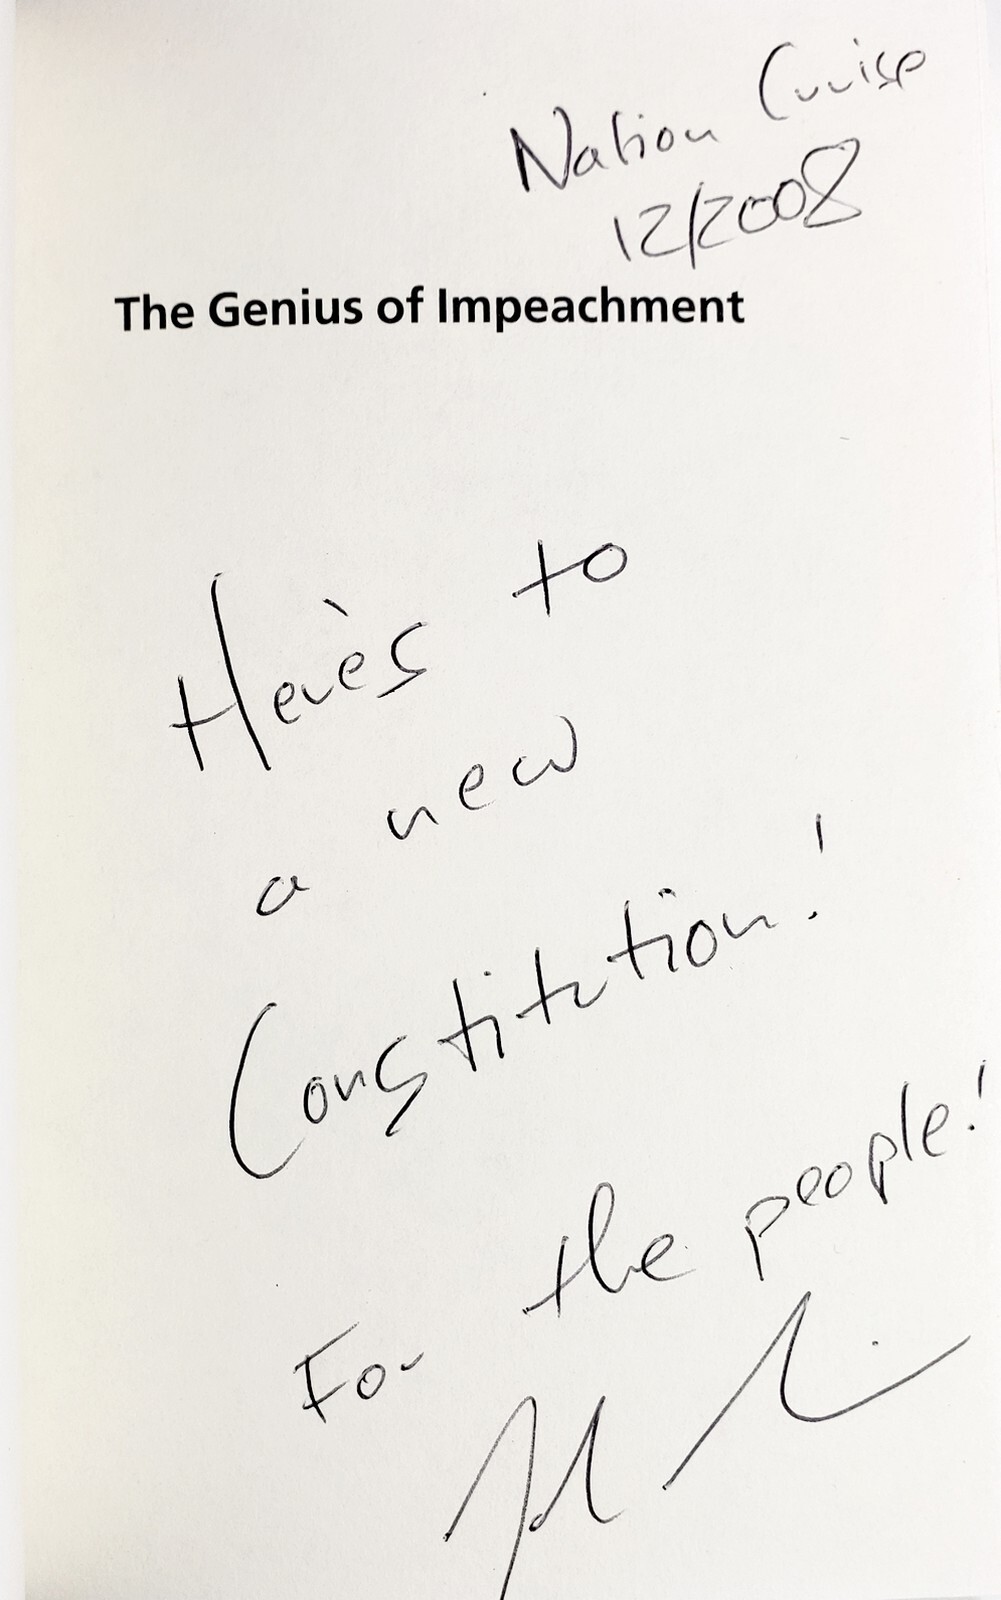 Nation Cruise
12/2008
The Genius of Impeachment
Here's to
a new
Constitution!
For the people!